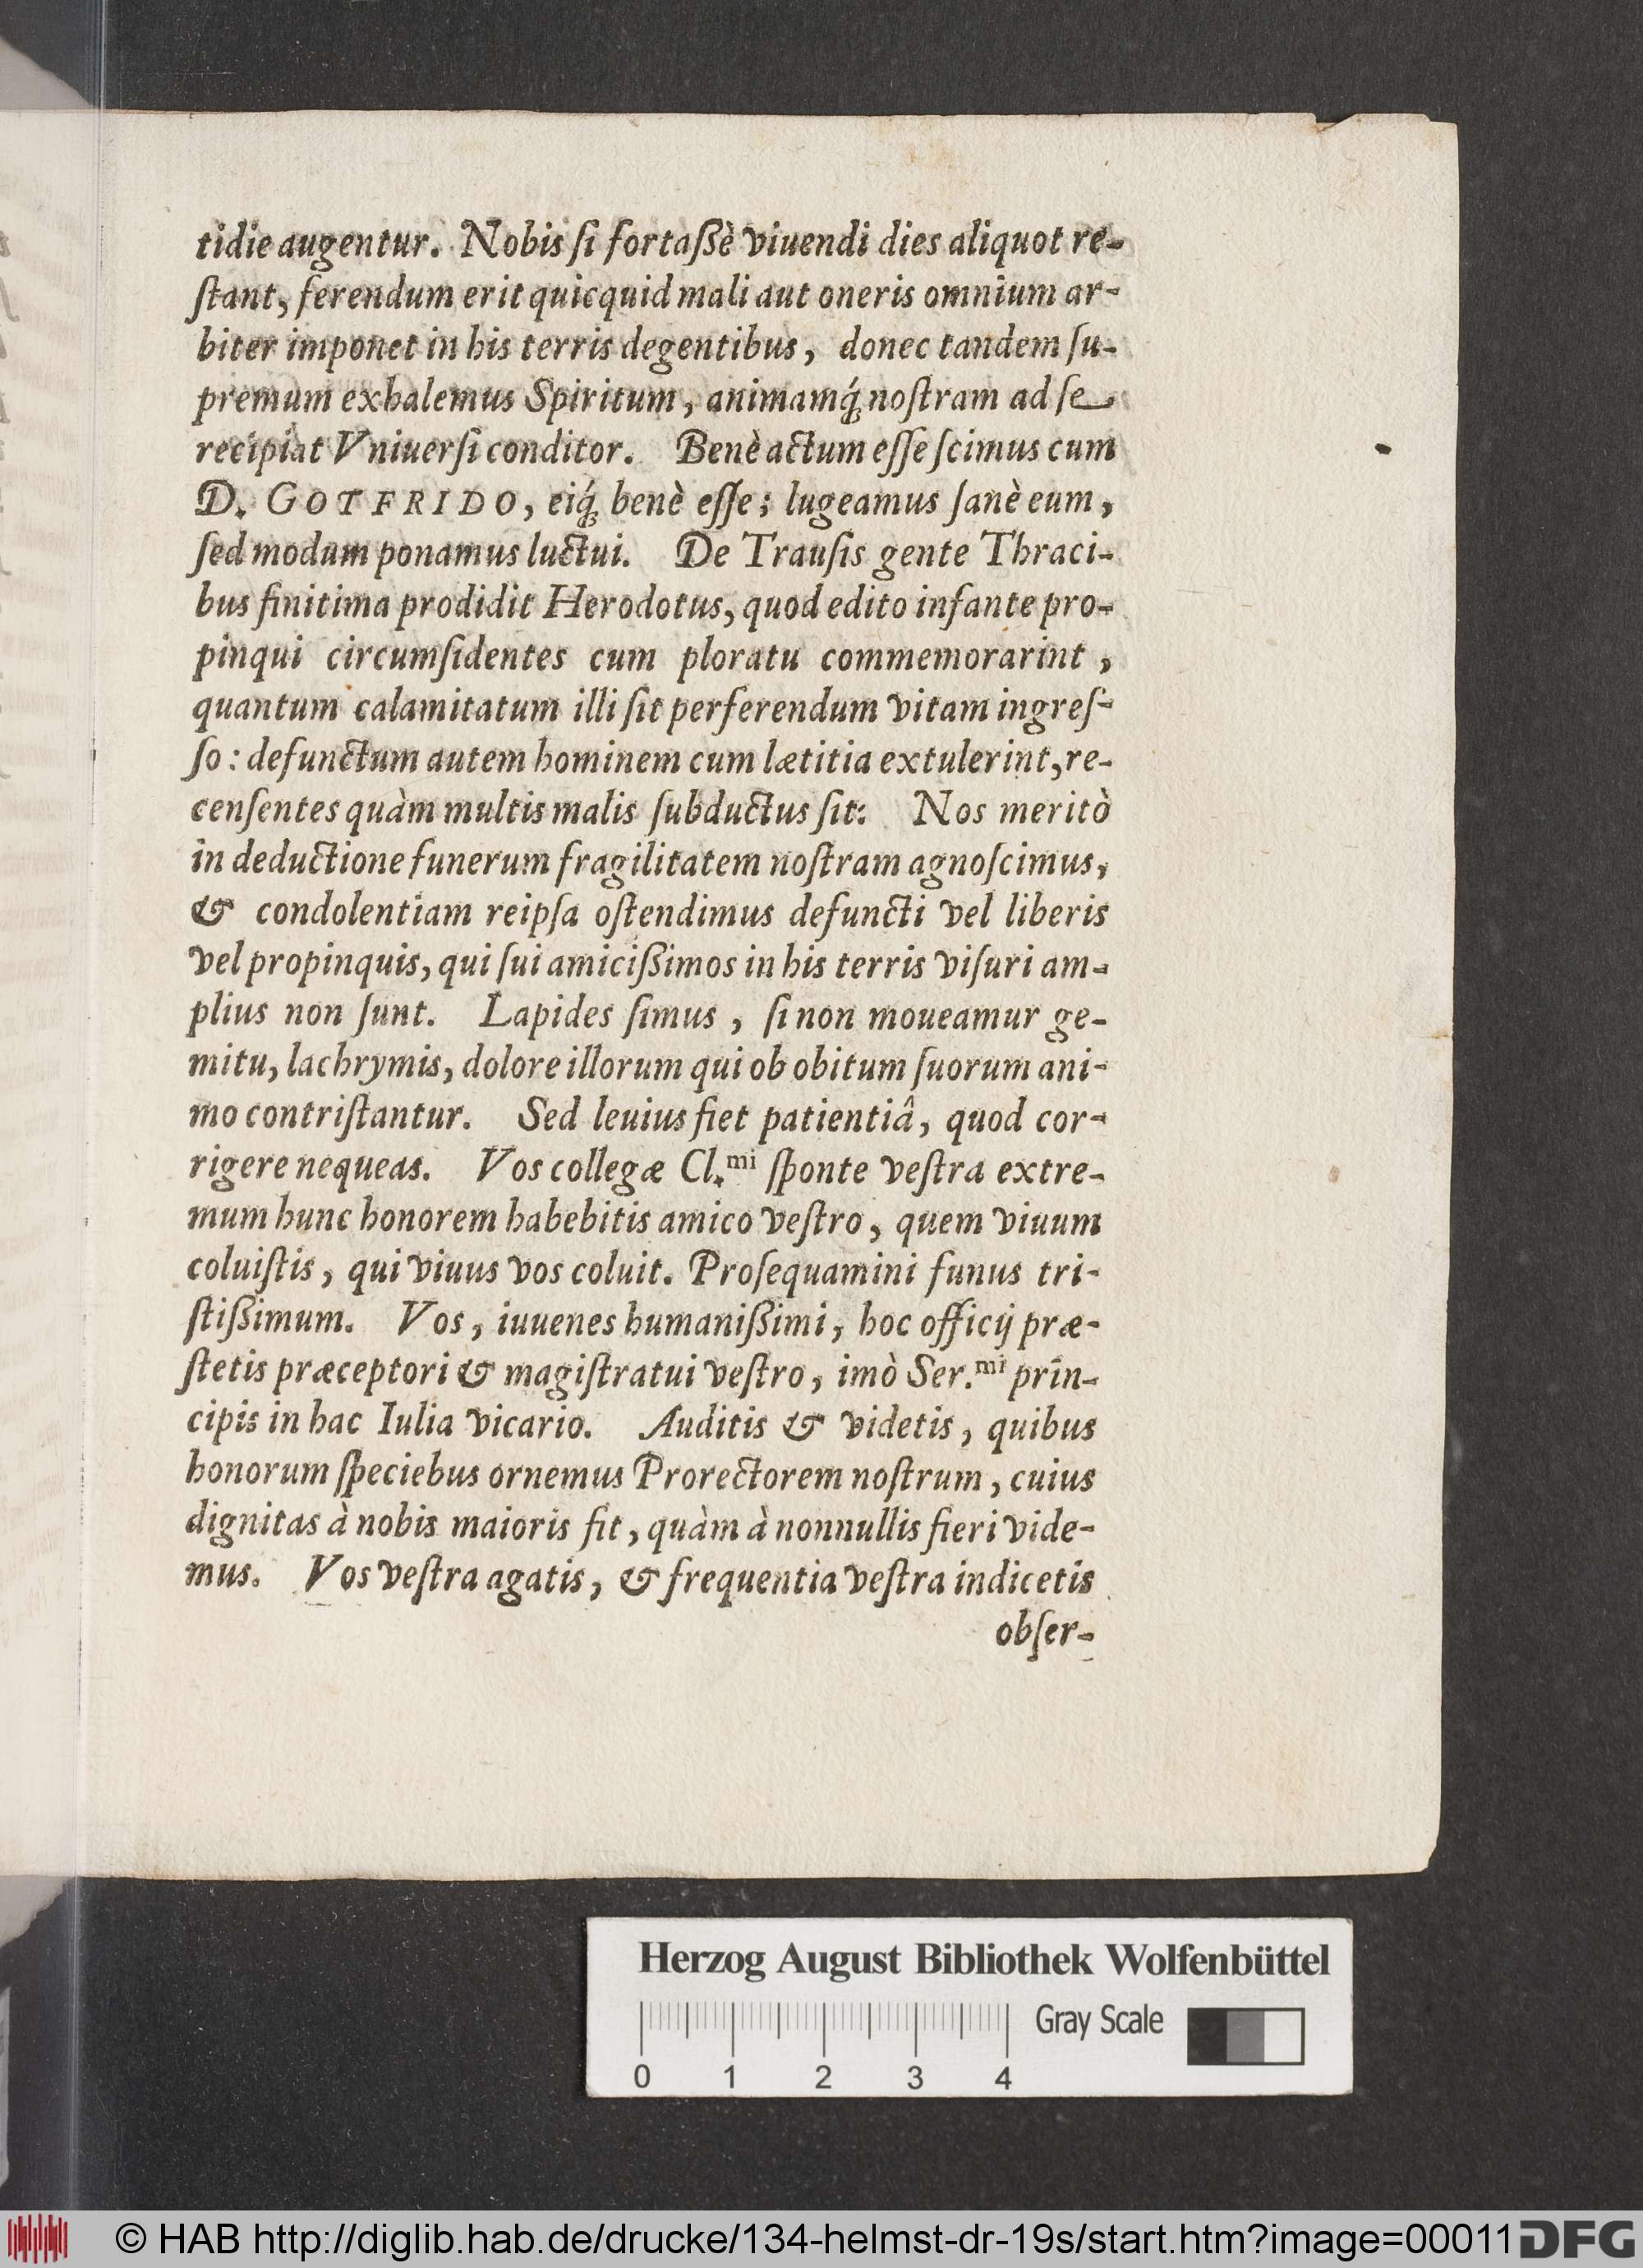 tidie augentur. Nobis ſi fortaßè viuendi dies aliquot re-
ſtant, ferendum erit quicquid mali aut oneris omnium ar-
biter imponet in his terris degentibus, donec tandem ſu-
premum exhalemus Spiritum, animamq́; noſtram ad ſe
recipiat Vniuerſi conditor. Benè actum eſſe ſcimus cum
D. GOTFRIDO, eiq́; benè eſſe; lugeamus ſanè eum,
ſed modum ponamus luctui. De Trauſis gente Thraci-
bus finitima prodidit Herodotus, quod edito infante pro-
pinqui circumſidentes cum ploratu commemorarint,
quantum calamitatum illi ſit perferendum vitam ingreſ-
ſo: defunctum autem hominem cum lætitia extulerint, re-
cenſentes quàm multis malis ſubductus ſit: Nos meritò
in deductione funerum fragilitatem noſtram agnoſcimus,
& condolentiam reipſa oſtendimus defuncti vel liberis
vel propinquis, qui ſui amicißimos in his terris viſuri am-
plius non ſunt. Lapides ſimus, ſi non moueamur ge-
mitu, lachrymis, dolore illorum qui ob obitum ſuorum ani-
mo contriſtantur. Sed leuius fiet patientiâ, quod cor-
rigere nequeas. Vos collegæ Cl.mi ſponte veſtra extre-
mum hunc honorem habebitis amico veſtro, quem viuum
coluiſtis, qui viuus vos coluit. Proſequamini funus tri-
ſtißimum. Vos, iuuenes humanißimi, hoc officij præ-
ſtetis præceptori & magiſtratui veſtro, imò Ser.mi prin-
cipis in hac Iulia vicario. Auditis & videtis, quibus
honorum ſpeciebus ornemus Prorectorem noſtrum, cuius
dignitas à nobis maioris fit, quàm à nonnullis fieri vide-
mus. Vos veſtra agatis, & frequentia veſtra indicetis
obſer-
Herzog August Bibliothek Wolfenbüttel
Gray Scale
0 1 2 3 4
© HAB http://diglib.hab.de/drucke/134-helmst-dr-19s/start.htm?image=00011 DFG